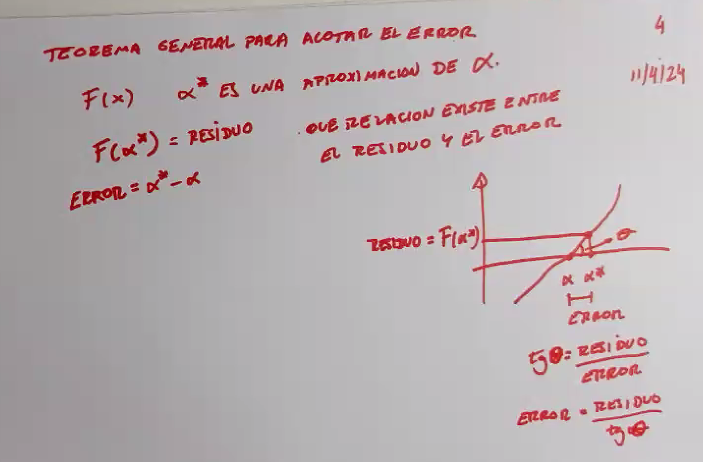 TEOREMA GENERAL PARA ACOTAR EL ERROR
4
11/4/24
F(x) α* ES UNA APROXIMACION DE α.
F(α*) = RESIDUO . QUE RELACION EXISTE ENTRE
EL RESIDUO Y EL ERROR
ERROR = α* - α
RESIDUO = F(α*)
θ
α α*
ERROR
tg θ = RESIDUO / ERROR
ERROR = RESIDUO / tg θ